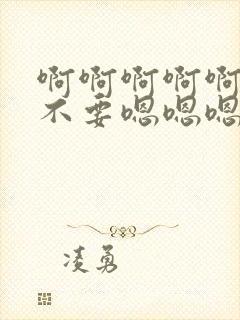 啊啊啊啊啊
不要嗯嗯嗯
凌勇